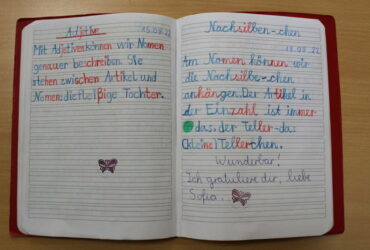 Adjektive
15.03.22
Mit Adjektiven können wir Nomen
genauer beschreiben. Sie
stehen zwischen Artikel und
Nomen: die fleißige Tochter.
Nachsilben-chen
18.03.22
Am Nomen können wir
die Nachsilbe-chen
anhängen. Der Artikel in
der Einzahl ist immer
das: der Teller-das
(kleine) Tellerchen.
Wunderbar!
Ich gratuliere dir, liebe
Sofia.